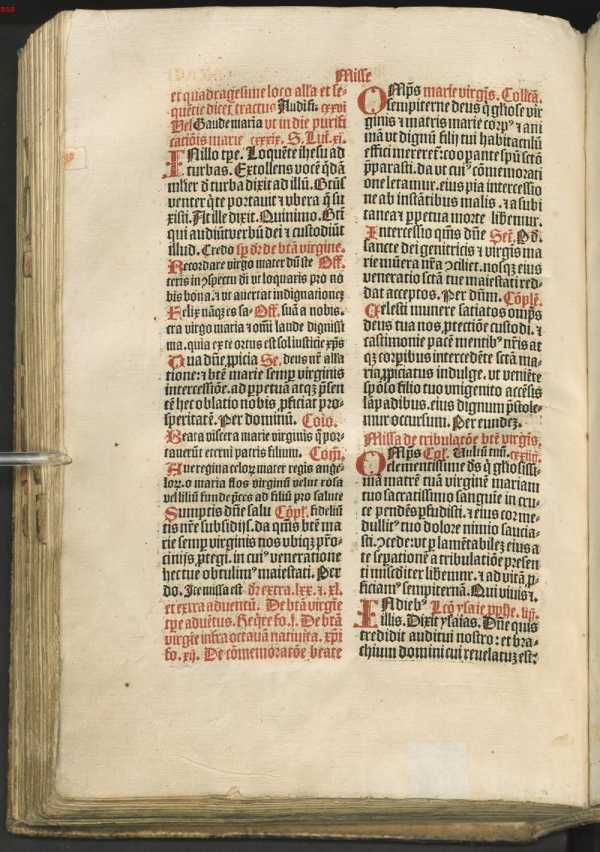 Misse
et quadragesime loco alla et se-
quētie dicet tractus Audi fi. cxxvi
Vel Gaude maria vt in die purifi
catiōis marie cxxxix. S. Luc. xi.
IN illo tpe. Loquēte ihesu ad
turbas. Extollens vocē q̄dā
mlier d̄ turba dixit ad illū. Btūs
venter q̄ te portauit ⁊ vbera q̄ su
xisti. At ille dixit. Quinimo. Bti
qui audiūt verbū dei ⁊ custodiūt
illud. Credo sp dr de btā virgine.
Recordare virgo mater dū ste Off.
teris in ɔspectu di vt loquaris pro no
bis bona. ⁊ vt auertat indignationeꝫ
Felix nāqꝫ es sa- Off. suā a nobis.
cra virgo maria ⁊ omi laude dignissi
ma. quia ex te ortus est sol iusticie xp̄s
Qua dn̄e ꝓpicia Se. deus nr̄ alla
tione: ⁊ btē marie semꝑ virginis
intercessiōe. ad ꝑpetuā atqꝫ p̄sen
tē hec oblatio nobis ꝓficiat pro-
speritatē. Per dominū. Cōio.
Beata viscera marie virginis q̄ por-
tauerūt eterni patris filium. Com̄.
Aue regina celoꝝ mater regis ange-
loꝝ. o maria flos virginū velut rosa
vel liliū funde p̄ces ad filiū pro salute
Sumptis dn̄e salu Cōpl. fideliū
tis nr̄e subsidijs. da q̄ms btē ma
rie semꝑ virginis nos vbiqꝫ pr̄o-
cinijs ꝓtegi. in cuiꝰ veneratione
hec tue obtulimꝰ maiestati. Per
do. Ite missa est dr extra. lxx. ⁊. xl.
et extra aduentū. De btā virgīe
tpe aduētus. Reqre fo. j. De btā
virgīe infra octauā natiuita. xpi
fo. xij. De cōmemoratōe beate
OMps marie virgis. Collcā.
sempiterne deus q̄ gliose vir
ginis ⁊ matris marie corpꝰ ⁊ ani
mā vt dignū filij tui habitaculū
effici mereret: coopante spū sctō
p̄parasti. da vt cuiꝰ cōmemorati
one letamur. eius pia intercessio
ne ab instātibus malis. ⁊ a subi
tanea ⁊ ꝑpetua morte liberemur.
Intercessio q̄ms dn̄e Secr̄. Pd̄.
sancte dei genitricis ⁊ virgis ma
rie mūera nr̄a ɔciliet. nosqꝫ eius
veneratio sctā tue maiestati red-
dat acceptos. Per dn̄m. Cōplē.
Celesti munere satiatos omps
deus tua nos ꝓtectiōe custodi. ⁊
castimonie pacē mentibꝰ nr̄is at
qꝫ corpibus intercedēte sctā ma-
ria ꝓpiciatus indulge. vt veniēte
spōso filio tuo vnigenito accēsis
lāpadibus. eius dignum p̄stole-
mur occursum. Per eundeꝫ.
Missa de tribulatōe btē virgis.
OMps Col. Vultū tuū. cxliij.
clementissime ds̄ q̄ gliosissi-
ma matrē tuā virginē mariam
tuo sacratissimo sanguie in cru-
ce pendēs ꝓfudisti. ⁊ eius cor me-
dullitꝰ tuo dolore nimio saucia-
sti. ɔcede: vt ꝑ lamētabilez eius a
te sepationē a tribulatiōe presen
ti miscditer libemur. ⁊ ad vitā ꝓ-
ficiamꝰ sempiternā. Qui viuis ⁊.
IN diebꝰ Lcō ysaie pphe. liij.
illis. Dixit ysaias. Dn̄e quis
credidit auditui nostro: et bra-
chium domini cui reuelatuꝫ est: